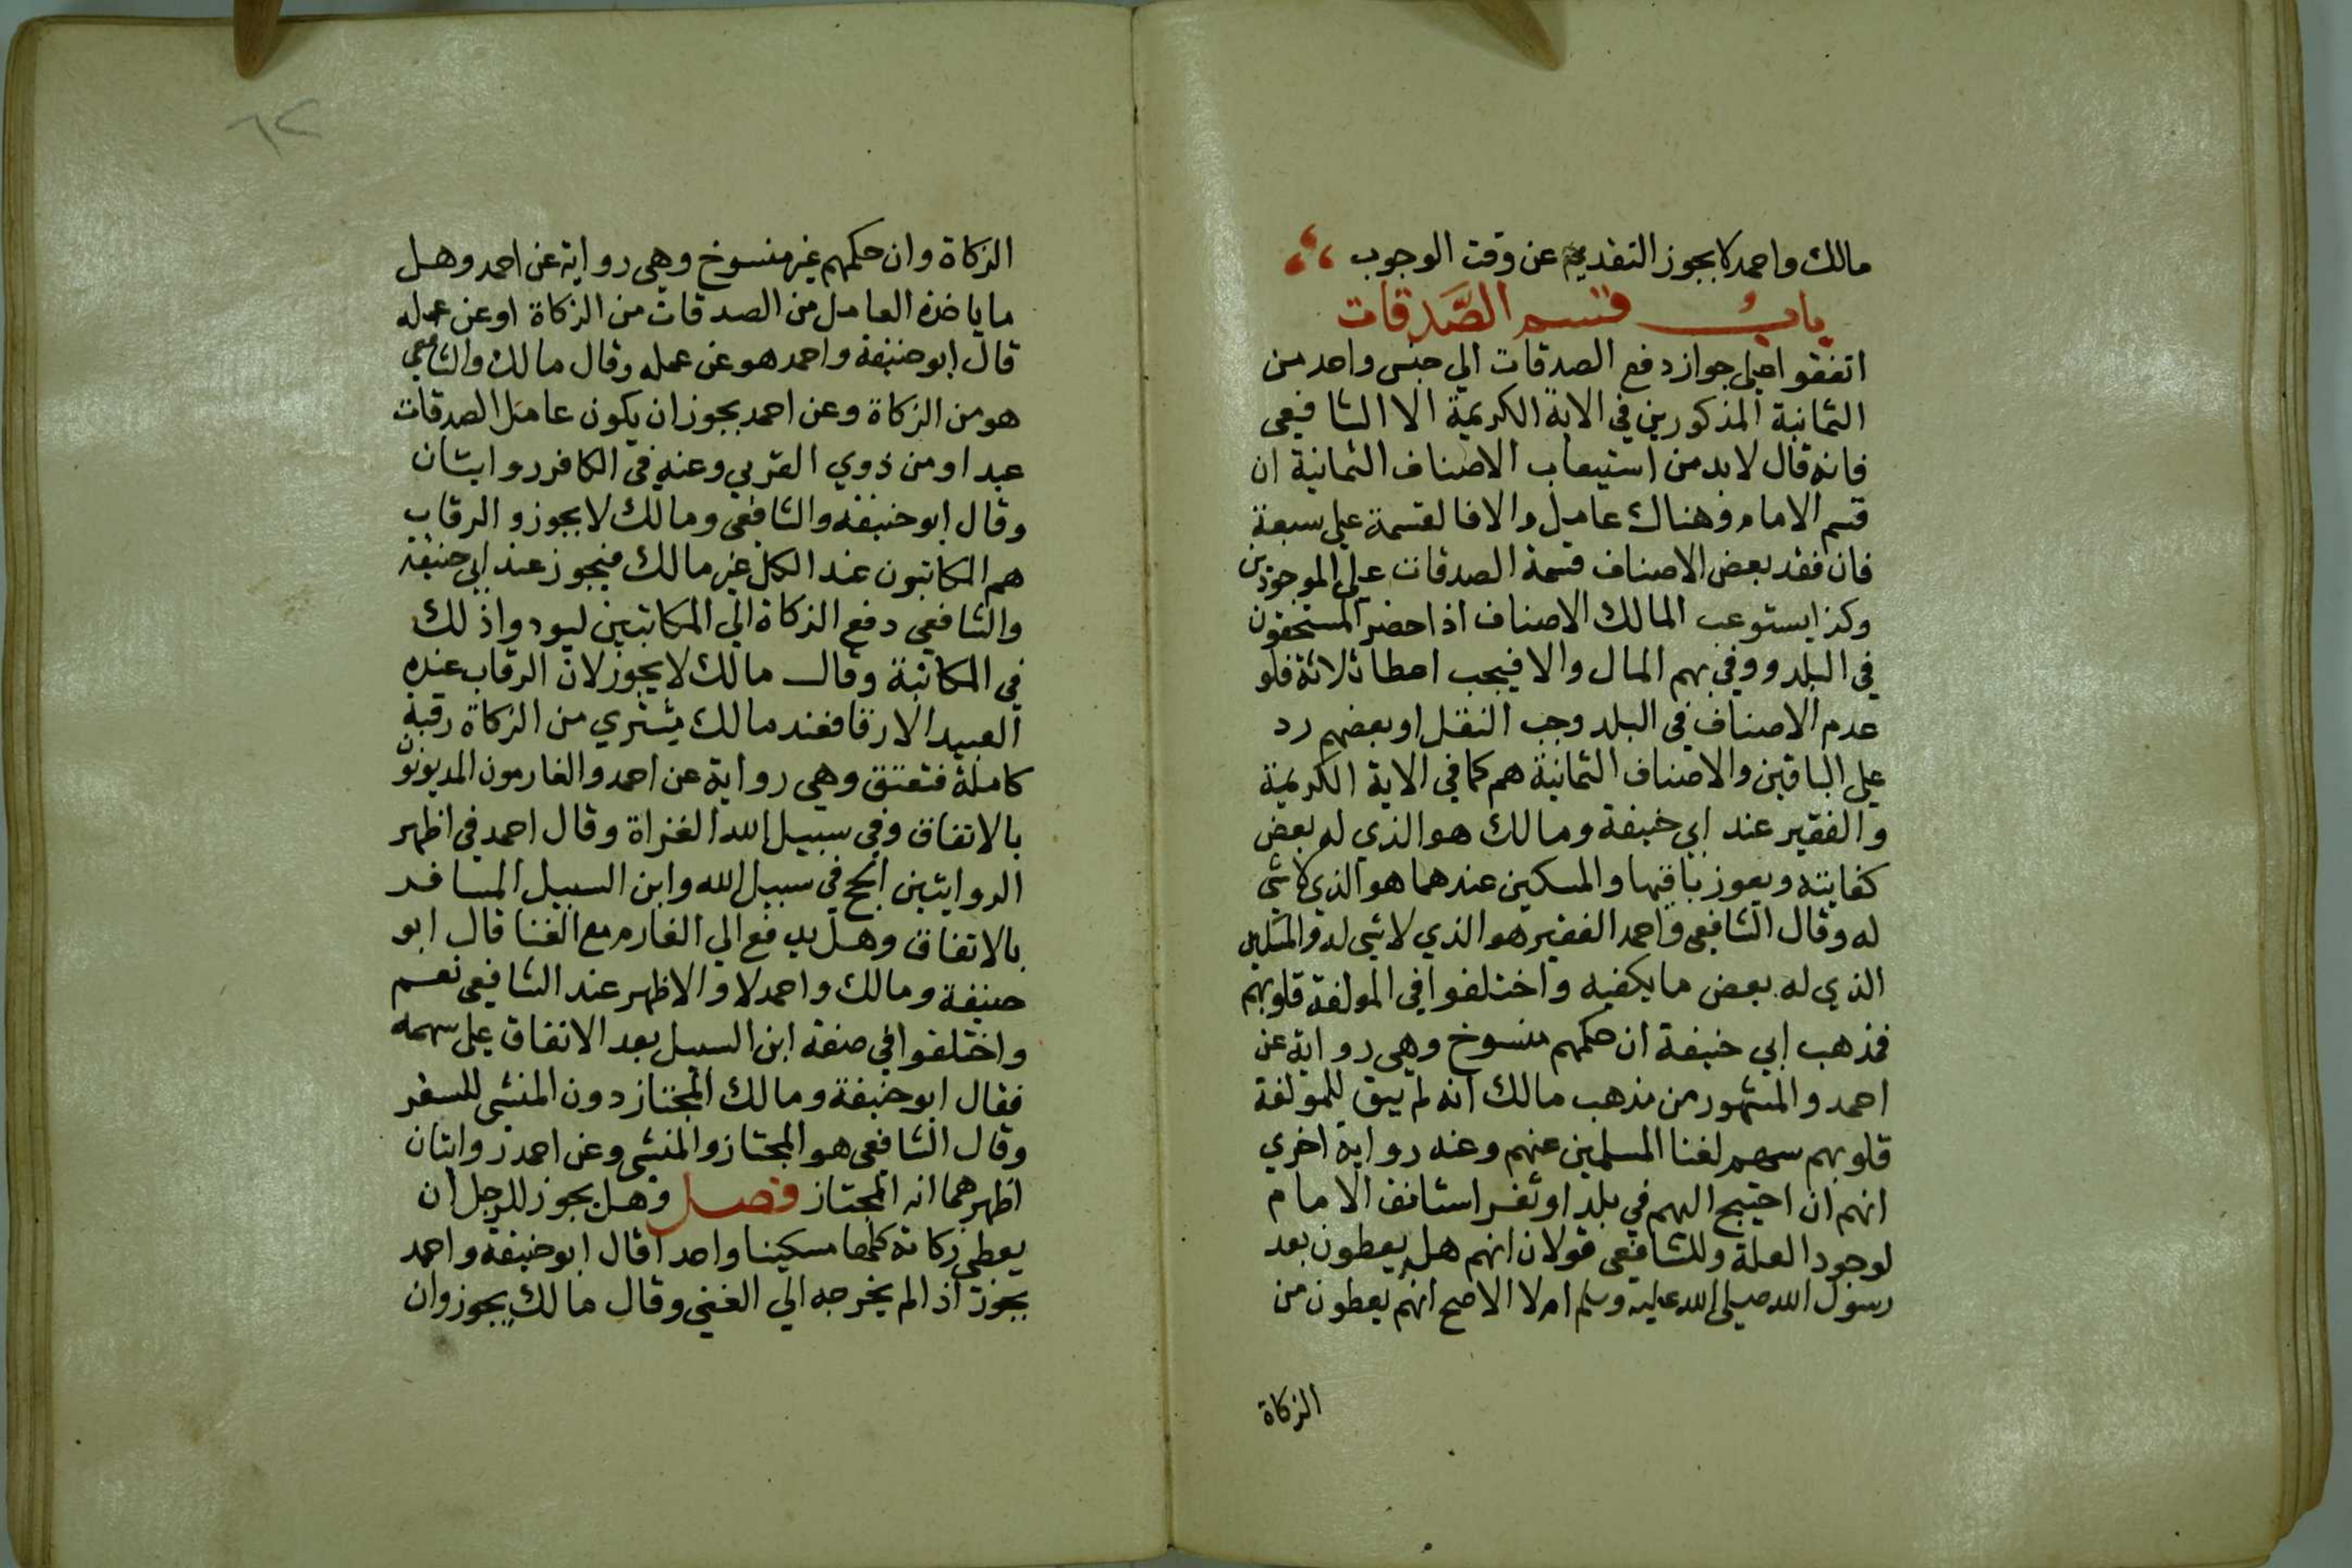 مالك واحمد لا يجوز التقديم عن وقت الوجوب
باب قسم الصدقات
اتفقوا على جواز دفع الصدقات الي جنس واحد من
الثمانية المذكورين في الاية الكريمة الا الشافعى
فانه قال لا بد من استيعاب الاصناف الثمانية ان
قسم الامام وهناك عامل والا فالقسمة على سبعة
فان فقد بعض الاصناف قسمة الصدقات على الموجودين
وكذا يستوعب المالك الاصناف اذا حضر المستحقون
في البلد ووفي بهم المال والا فيجب اعطا ثلاثة فلو
عدم الاصناف في البلد وجب النقل او بعضهم رد
على الباقين والاصناف الثمانية هم كما في الاية الكريمة
والفقير عند ابي حنيفة ومالك هو الذي له بعض
كفايته ويعوز باقيها والمسكين عندهما هو الذي لا شي
له وقال الشافعى واحمد الفقير هو الذي لا شي له والمسكين
الذي له بعض ما يكفيه واختلفوا في المولفة قلوبهم
فمذهب ابي حنيفة ان حكمهم منسوخ وهي رواية عن
احمد والمشهور من مذهب مالك انه لم يبق للمولفة
قلوبهم سهم لغنا المسلمين عنهم وعنه رواية اخري
انهم ان احتيج اليهم في بلد او ثغر استانف الامام
لوجود العلة وللشافعى قولان انهم هل يعطون بعد
رسول الله صلى الله عليه وسلم ام لا الاصح انهم يعطون من
الزكاة
٦٢
الزكاة وان حكمهم غير منسوخ وهي رواية عن احمد وهل
ما ياخذه العامل من الصدقات من الزكاة او عن عمله
قال ابو حنيفة واحمد هو عن عمله وقال مالك والشافعى
هو من الزكاة وعن احمد يجوز ان يكون عامل الصدقات
عبدا او من ذوي القربي وعنه في الكافر روايتان
وقال ابو حنيفة والشافعى ومالك لا يجوز والرقاب
هم المكاتبون عند الكل غير مالك فيجوز عند ابي حنيفة
والشافعي دفع الزكاة الي المكاتبين ليودوا ذلك
في المكاتبة وقال مالك لا يجوز لان الرقاب عنده
العبيد الارقا فعند مالك يشتري من الزكاة رقبة
كاملة فتعتق وهي رواية عن احمد والغارمون المديونون
بالاتفاق وفي سبيل الله الغزاة وقال احمد في اظهر
الروايتين الحج في سبيل الله وابن السبيل المسافر
بالاتفاق وهل يدفع الي الغارم مع الغنا قال ابو
حنيفة ومالك واحمد لا والاظهر عند الشافعى نعم
واختلفوا في صفة ابن السبيل بعد الاتفاق على سهمه
فقال ابو حنيفة ومالك المجتاز دون المنشي للسفر
وقال الشافعى هو المجتاز والمنشي وعن احمد روايتان
اظهرهما انه المجتاز فصل وهل يجوز للرجل ان
يعطى زكاته كلها مسكينا واحدا قال ابو حنيفة واحمد
يجوز اذا لم يخرجه الي الغني وقال مالك يجوز وان